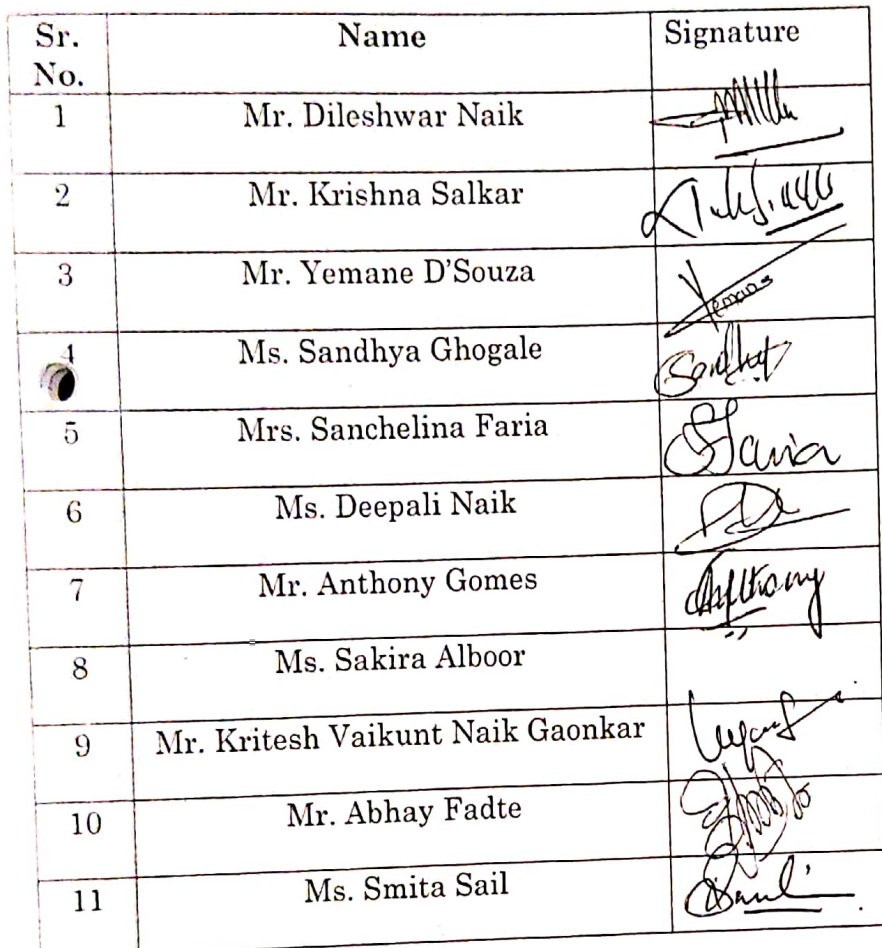 Sr. No. Name Signature
1 Mr. Dileshwar Naik
2 Mr. Krishna Salkar
3 Mr. Yemane D'Souza Yemane
4 Ms. Sandhya Ghogale Sandhya
5 Mrs. Sanchelina Faria SFaria
6 Ms. Deepali Naik
7 Mr. Anthony Gomes Anthony
8 Ms. Sakira Alboor
9 Mr. Kritesh Vaikunt Naik Gaonkar
10 Mr. Abhay Fadte
11 Ms. Smita Sail